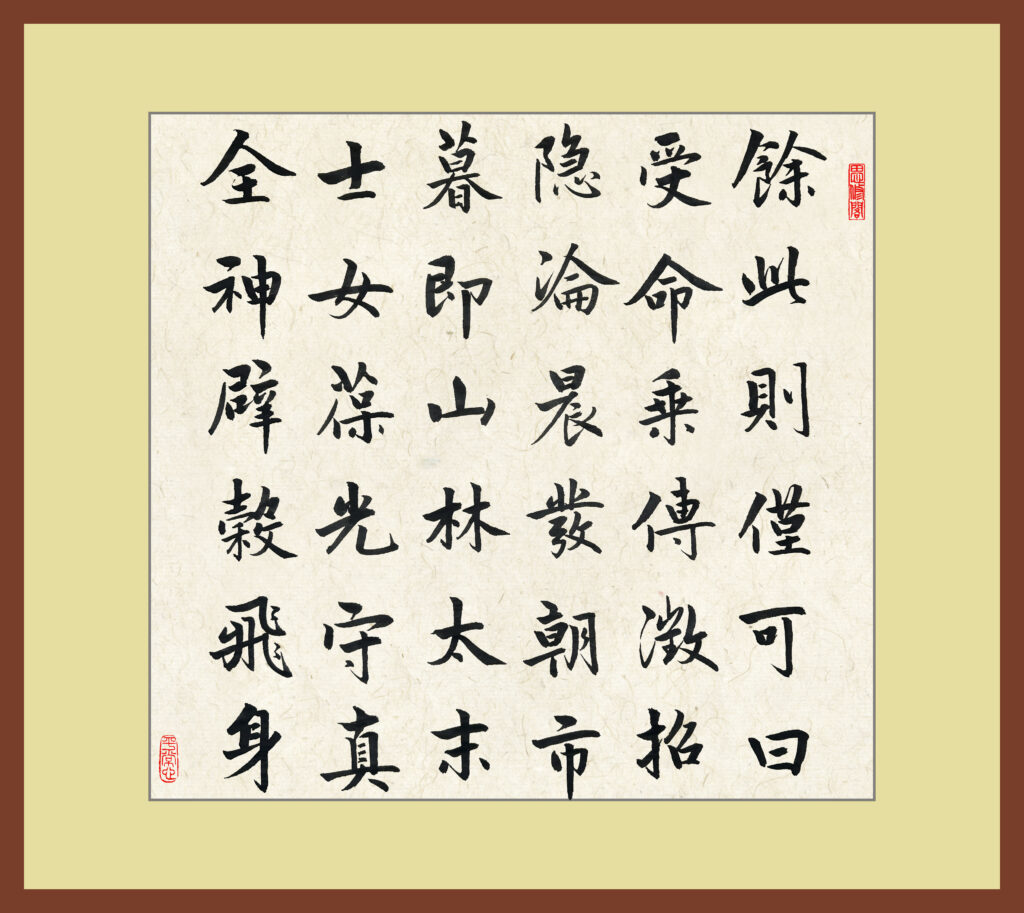 餘此則僅可曰
受命乘傳澂招
隐淪晨發朝市
暮即山林太末
士女葆光守真
全神辟穀飛身